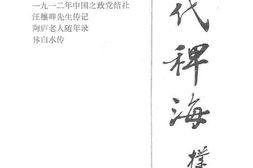 一九一二年中国之政党结社
汪穰卿先生传记
陶庐老人随年录
林白水传
代稗海